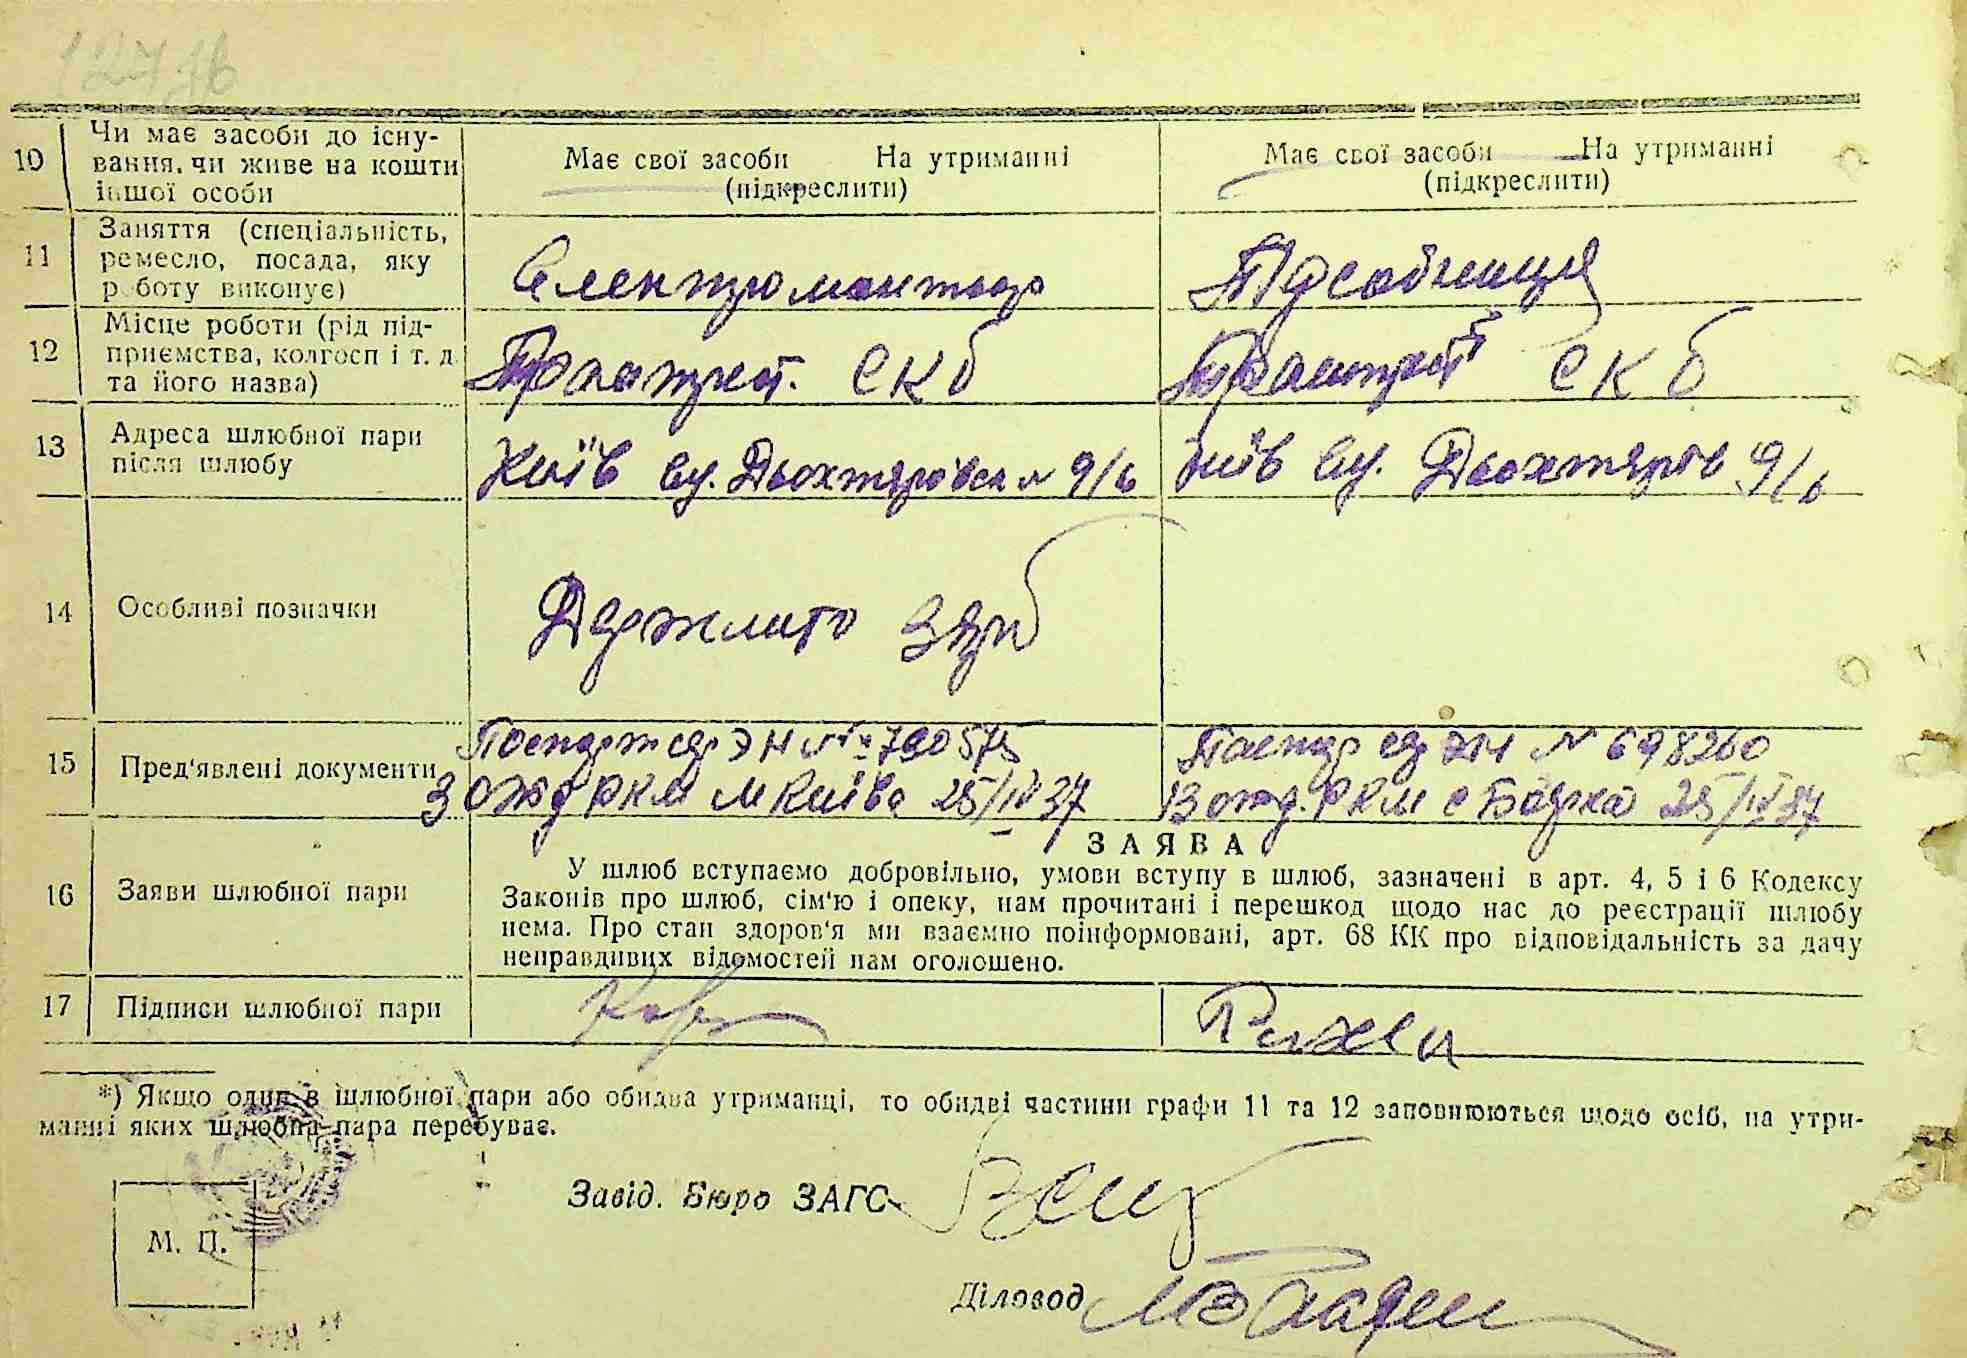 10 Чи має засоби до існу-
вання, чи живе на кошти
іншої особи
Має свої засоби На утриманні
(підкреслити)
Має свої засоби На утриманні
(підкреслити)
11 Заняття (спеціальність,
ремесло, посада, яку
роботу виконує)
Електромонтьор
Підсобниця
12 Місце роботи (рід під-
приємства, колгосп і т. д.
та його назва)
СКБ
СКБ
13 Адреса шлюбної пари
після шлюбу
Київ вул. Дьохтярівська № 9/6
Київ вул. Дьохтярів 9/6
14 Особливі позначки
Держмито 3 крб
15 Пред'явлені документи
Паспорт сер ЭН № 790575
3 отд РКМ м Київа 25/IV 37
Паспор сер ЭН № 698260
отд. РКМ с Боярка 25/IV 37
16 Заяви шлюбної пари
ЗАЯВА
У шлюб вступаємо добровільно, умови вступу в шлюб, зазначені в арт. 4, 5 і 6 Кодексу
Законів про шлюб, сім'ю і опеку, нам прочитані і перешкод щодо нас до реєстрації шлюбу
нема. Про стан здоров'я ми взаємно поінформовані, арт. 68 КК про відповідальність за дачу
неправдивих відомостей нам оголошено.
17 Підписи шлюбної пари
*) Якщо один в шлюбної пари або обидва утриманці, то обидві частини графи 11 та 12 заповнюються щодо осіб, на утри-
манні яких шлюбна пара перебуває.
Завід. Бюро ЗАГС
М. П.
Діловод